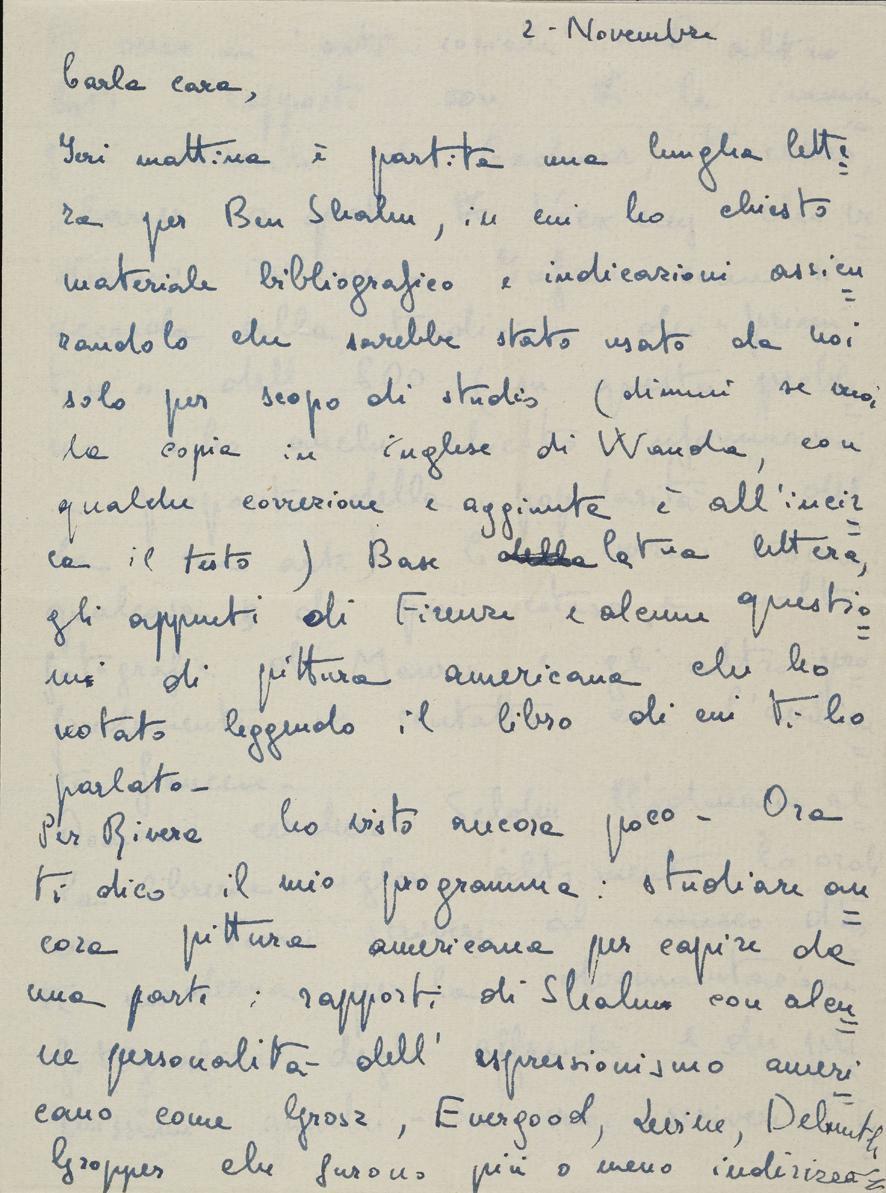 2 - Novembre
Carla cara,
Ieri mattina è partita una lunga lette=
ra per Ben Shahn, in cui ho chiesto
materiale bibliografico e indicazioni assicu=
randolo che sarebbe stato usato da noi
solo per scopo di studio (dimmi se vuoi
la copia in inglese di Wanda, con
qualche correzione e aggiunta è all'incir=
ca il testo) Base della la tua lettera,
gli appunti di Firenze e alcune questio=
ni di pittura americana che ho
notato leggendo il libro di cui ti ho
parlato -
Per Rivera ho visto ancora poco - Ora
ti dico il mio programma: studiare an=
cora pittura americana per capire da
una parte i rapporti di Shahn con alcu=
ne personalità dell'espressionismo ameri=
cano come Grosz, Evergood, Levine,
Gropper che furono più o meno indirizza=